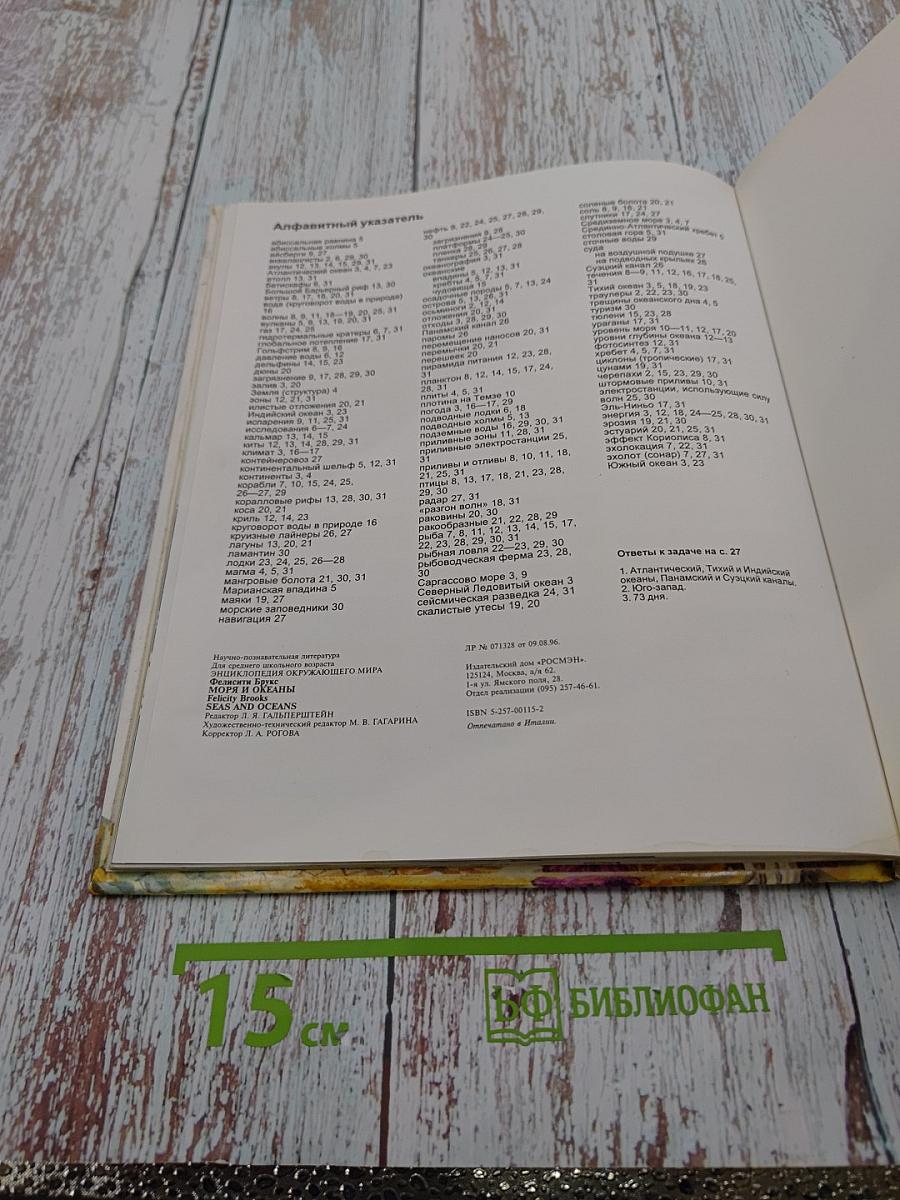 Алфавитный указатель
абиссальная равнина 5
абиссальные холмы 5
айсберги 9, 27
аквалангисты 2, 6, 29, 30
акулы 12, 13, 14, 15, 29, 31
Атлантический океан 3, 4, 7, 23
атолл 13, 31
батискафы 6, 31
Большой Барьерный риф 13, 30
ветры 8, 17, 18, 20, 31
вода (круговорот воды в природе)
16
волны 8, 9, 11, 18—19, 20, 25, 31
вулканы 5, 9, 13, 19, 20, 31
газ 17, 24, 25
гидротермальные кратеры 6, 7, 31
глобальное потепление 17, 31
Гольфстрим 8, 9, 16
давление воды 6, 12
дельфины 14, 15, 23
дюны 20
загрязнение 9, 17, 28, 29, 30
залив 3, 20
Земля (структура) 4
зоны 12, 21, 31
илистые отложения 20, 21
Индийский океан 3, 23
испарения 9, 11, 25, 31
исследования 6—7, 24
кальмар 13, 14, 15
киты 12, 13, 14, 28, 29, 31
климат 3, 16—17
контейнеровоз 27
континентальный шельф 5, 12, 31
континенты 3, 4
корабли 7, 10, 15, 24, 25,
26—27, 29
коралловые рифы 13, 28, 30, 31
коса 20, 21
криль 12, 14, 23
круговорот воды в природе 16
круизные лайнеры 26, 27
лагуны 13, 20, 21
ламантин 30
лодки 23, 24, 25, 26—28
магма 4, 5, 31
мангровые болота 21, 30, 31
Марианская впадина 5
маяки 19, 27
морские заповедники 30
навигация 27
нефть 9, 22, 24, 25, 27, 28, 29,
30
загрязнения 9, 28
платформы 24—25, 30
пленка 28, 29
танкеры 25, 26, 27, 28
океанография 3, 31
океанские
впадины 5, 12, 13, 31
хребты 4, 5, 7, 31
чудовища 15
осадочные породы 5, 7, 13, 24
острова 5, 13, 26, 31
осьминоги 2, 12, 14
отложения 20, 31
отходы 3, 28, 29, 30
Панамский канал 26
паромы 26
перемещение наносов 20, 31
перемычки 20, 21
перешеек 20
пирамида питания 12, 23, 28,
31
планктон 8, 12, 14, 15, 17, 24,
28, 31
плиты 4, 5, 31
плотина на Темзе 10
погода 3, 16—17, 29
подводные лодки 6, 18
подводные холмы 5, 13
подземные воды 16, 29, 30, 31
приливные зоны 11, 28, 31
приливные электростанции 25,
31
приливы и отливы 8, 10, 11, 18,
21, 25, 31
птицы 8, 13, 17, 18, 21, 23, 28,
29, 30
радар 27, 31
«разгон волн» 18, 31
раковины 20, 30
ракообразные 21, 22, 28, 29
рыба 7, 8, 11, 12, 13, 14, 15, 17,
22, 23, 28, 29, 30, 31
рыбная ловля 22—23, 29, 30
рыбоводческая ферма 23, 28,
30
Саргассово море 3, 9
Северный Ледовитый океан 3
сейсмическая разведка 24, 31
скалистые утесы 19, 20
соленые болота 20, 21
соль 8, 9, 16, 21
спутники 17, 24, 27
Средиземное море 3, 4, 7
Срединно-Атлантический хребет 5
столовая гора 5, 31
сточные воды 29
суда
на воздушной подушке 27
на подводных крыльях 26
Суэцкий канал 26
течения 8—9, 11, 12, 16, 17, 18, 25,
31
Тихий океан 3, 5, 18, 19, 23
траулеры 2, 22, 23, 30
трещины океанского дна 4, 5
туризм 30
тюлени 15, 23, 28
ураганы 17, 31
уровень моря 10—11, 12, 17, 20
уровни глубины океана 12—13
фотосинтез 12, 31
хребет 4, 5, 7, 31
циклоны (тропические) 17, 31
цунами 19, 31
черепахи 2, 15, 23, 29, 30
штормовые приливы 10, 31
электростанции, использующие силу
волн 25, 30
Эль-Ниньо 17, 31
энергия 3, 12, 18, 24—25, 28, 30, 31
эрозия 19, 21, 30
эстуарий 20, 21, 25, 31
эффект Кориолиса 8, 31
эхолокация 7, 22, 31
эхолот (сонар) 7, 27, 31
Южный океан 3, 23
Ответы к задаче на с. 27
1. Атлантический, Тихий и Индийский
океаны, Панамский и Суэцкий каналы.
2. Юго-запад.
3. 73 дня.
Научно-познавательная литература
Для среднего школьного возраста
ЭНЦИКЛОПЕДИЯ ОКРУЖАЮЩЕГО МИРА
Фелисити Брукс
МОРЯ И ОКЕАНЫ
Felicity Brooks
SEAS AND OCEANS
Редактор Л. Я. ГАЛЬПЕРШТЕЙН
Художественно-технический редактор М. В. ГАГАРИНА
Корректор Л. А. РОГОВА
ЛР № 071328 от 09.08.96.
Издательский дом «РОСМЭН».
125124, Москва, а/я 62.
1-я ул. Ямского поля, 28.
Отдел реализации (095) 257-46-61.
ISBN 5-257-00115-2
Отпечатано в Италии.
15 см
БФ БИБЛИОФАН